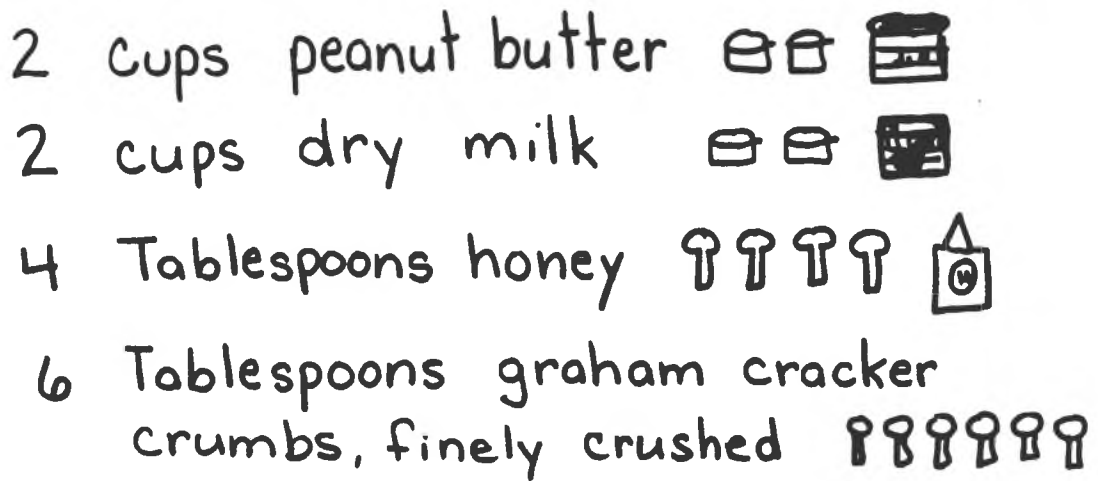 2 cups peanut butter
2 cups dry milk
4 Tablespoons honey
6 Tablespoons graham cracker
crumbs, finely crushed